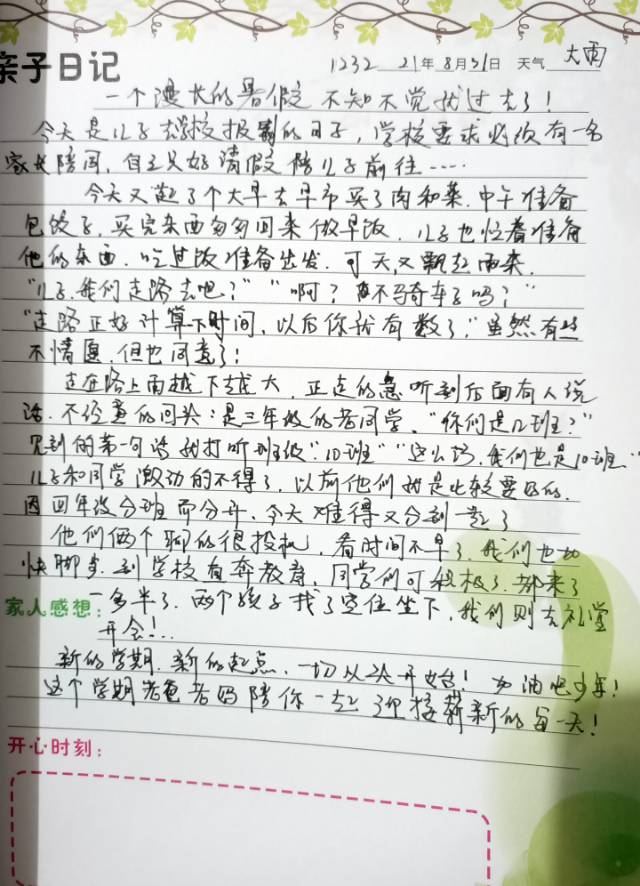 亲子日记
1232 21年8月31日 天气 大雨
一个漫长的暑假 不知不觉就过去了!
今天是儿子去学校报到的日子,学校要求必须有一名
家长陪同,自己只好请假陪儿子前往……
今天又起了个大早去早市买了肉和菜.中午准备
包饺子,买完东西匆匆回来做早饭.儿子也忙着准备
他的东西.吃过饭准备出发.可天又飘起雨来.
“儿子.我们走路去吧?”“啊?不骑车了吗?”
“走路正好计算下时间,以后你就有数了,”虽然有些
不情愿.但也同意了!
走在路上雨越下越大,正走的急听到后面有人说
话.不经意的回头:是三年级的老同学,“你们是几班?”
见到的第一句话就打听班级“:10班”“这么巧.我们也是10班”
儿子和同学激动的不得了,以前他们就是比较要好的.
因四年级分班而分开、今天难得又分到一起了
他们俩个聊的很投机,看时间不早了,我们也加
快脚步.到学校直奔教室,同学们可积极了.都来了
家人感想:
一多半了.两个孩子找了空位坐下,我们则去礼堂
开会!..
新的学期.新的起点,一切从头开始!加油吧少年!
这个学期老爸老妈陪你一起迎接崭新的每一天!
开心时刻: